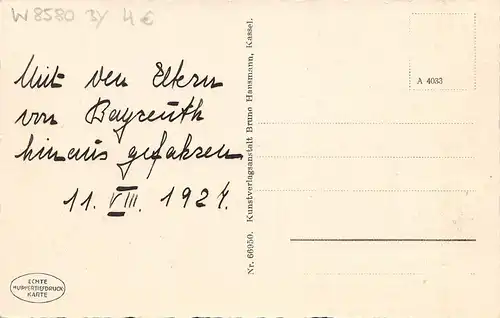 W8580 3Y 4€
Mit den Eltern
von Bayreuth
hinaus gefahren
11. VIII. 1924.
Nr. 66950. Kunstverlagsanstalt Bruno Hansmann, Kassel.
A 4033
ECHTE
KUPFERTIEFDRUCK
KARTE